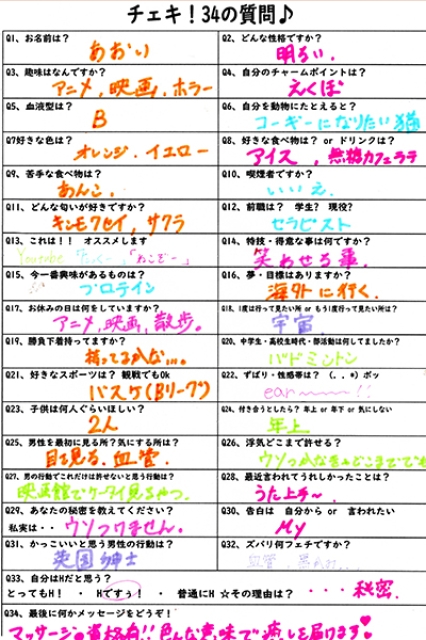 チェキ！34の質問♪
Q1、お名前は？
あおい
Q2、どんな性格ですか？
明るい.
Q3、趣味はなんですか？
アニメ，映画，ホラー
Q4、自分のチャームポイントは？
えくぼ
Q5、血液型は？
B
Q6、自分を動物にたとえると？
コーギーになりたい猫
Q7好きな色は？
オレンジ．イエロー
Q8、好きな食べ物は？ or ドリンクは？
アイス，無糖カフェラテ
Q9、苦手な食べ物は？
あんこ．
Q10、喫煙者ですか？
いいえ.
Q11、どんな匂いが好きですか？
キンモクセイ，サクラ
Q12、前職は？ 学生？ 現役？
セラピスト
Q13、これは！！ オススメします
Youtube 「ねこぞー」
Q14、特技・得意な事は何ですか？
笑わせる事.
Q15、今一番興味があるものは？
プロテイン
Q16、夢・目標はありますか？
海外に行く．
Q17、お休みの日は何をしていますか？
アニメ，映画，散歩。
Q18、1度は行って見たい所orもう1度行って見たい所は？
宇宙.
Q19、勝負下着持ってますか？
持ってるかな….
Q20、中学生・高校生時代・部活動は何してましたか？
バドミントン
Q21、好きなスポーツは？ 観戦でもOk
バスケ（Bリーグ）
Q22、ずばり・性感帯は？ (．．*) ポッ
ear〜〜〜!!
Q23、子供は何人ぐらいほしい？
2人
Q24、付き合うとしたら？ 年上 or 年下 or 気にしない
年上
Q25、男性を最初に見る所？気にする所は？
目を見る．血管．
Q26、浮気どこまで許せる？
Q27、男の行動でこれだけは許せないと思う行動は？
映画館でケータイ見るやつ．
Q28、最近言われてうれしかったことは？
うた上手〜．
Q29、あなたの秘密を教えてください？
私実は・・ウソつけません．
Q30、告白は 自分から or 言われたい
My
Q31、かっこいいと思う男性の行動は？
英国紳士
Q32、ズバリ何フェチですか？
血管．
Q33、自分はHだと思う？
とってもH！ ・ Hですぅ！ ・ 普通にH ☆その理由は？ ・・・秘密．
Q34、最後に何かメッセージをどうぞ！
マッサージの資格有!!色んな意味で癒しを届けます♥